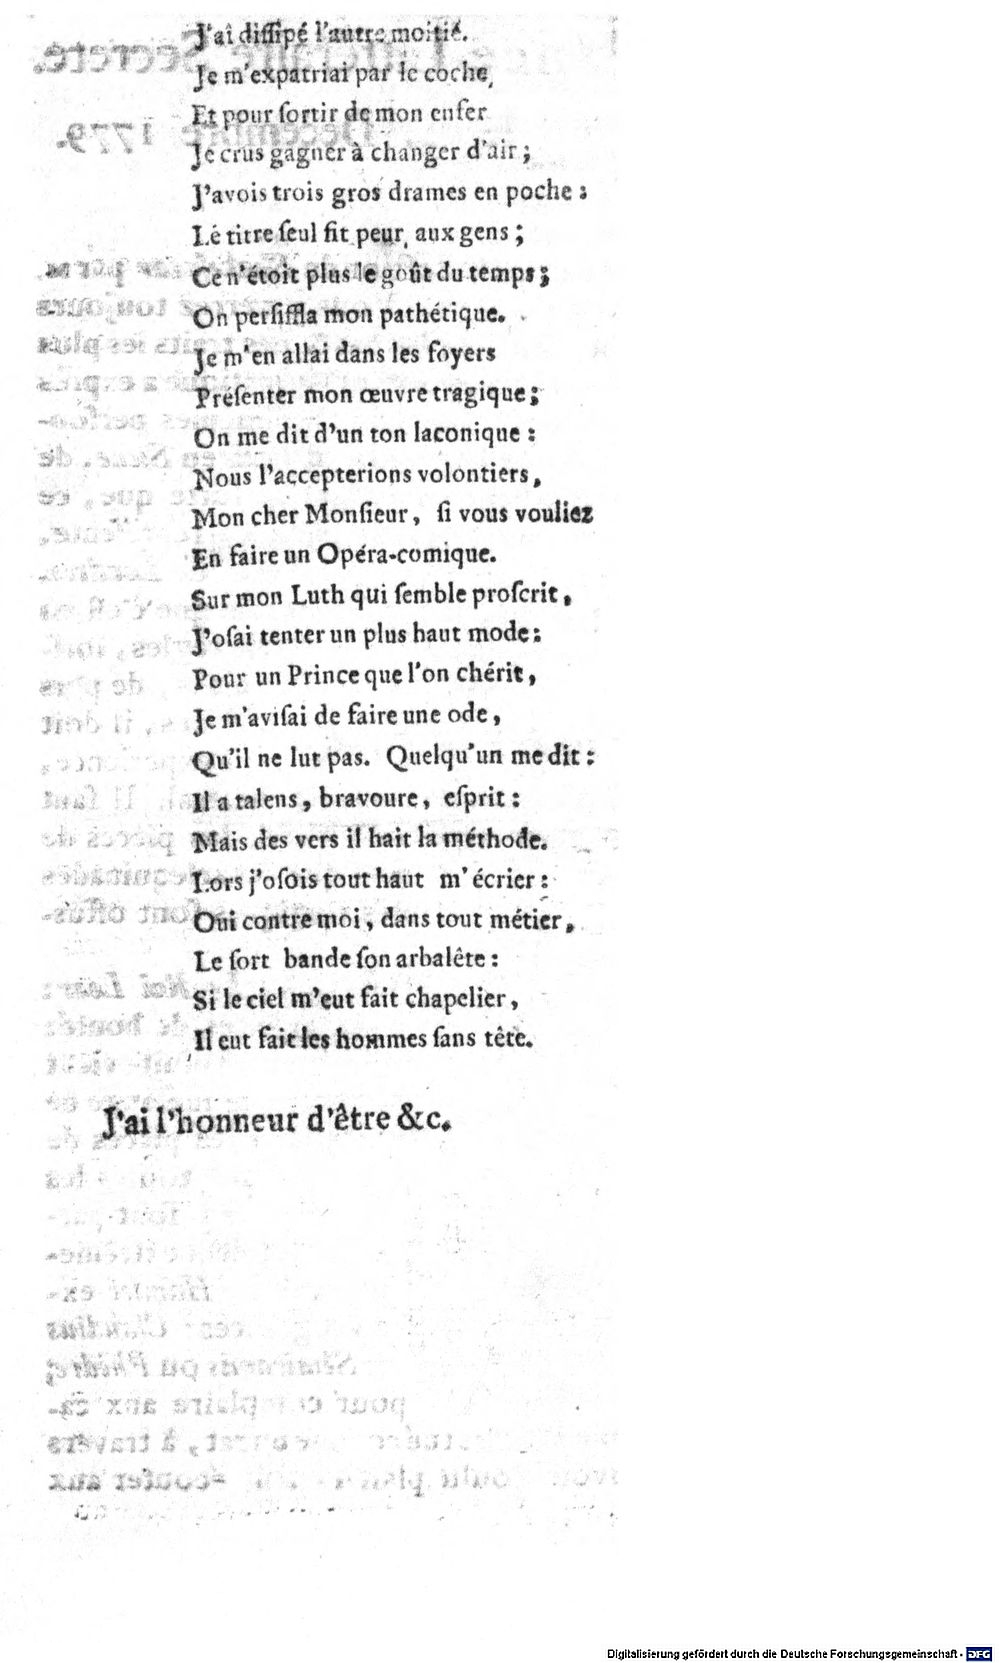 J'ai diſſipé l'autre moitié.
Je m'expatriai par le coche,
Et pour ſortir de mon enfer
Je crus gagner à changer d'air ;
J'avois trois gros drames en poche :
Le titre ſeul fit peur aux gens ;
Ce n'étoit plus le goût du temps ;
On perſiffla mon pathétique.
Je m'en allai dans les foyers
Préſenter mon œuvre tragique ;
On me dit d'un ton laconique :
Nous l'accepterions volontiers,
Mon cher Monſieur, ſi vous vouliez
En faire un Opéra-comique.
Sur mon Luth qui ſemble proſcrit,
J'oſai tenter un plus haut mode :
Pour un Prince que l'on chérit,
Je m'aviſai de faire une ode,
Qu'il ne lut pas. Quelqu'un me dit :
Il a talens, bravoure, eſprit :
Mais des vers il hait la méthode.
Lors j'oſois tout haut m'écrier :
Oui contre moi, dans tout métier,
Le ſort bande ſon arbalête :
Si le ciel m'eut fait chapelier,
Il eut fait les hommes ſans tête.
J'ai l'honneur d'être &c.
Digitalisierung gefördert durch die Deutsche Forschungsgemeinschaft - DFG